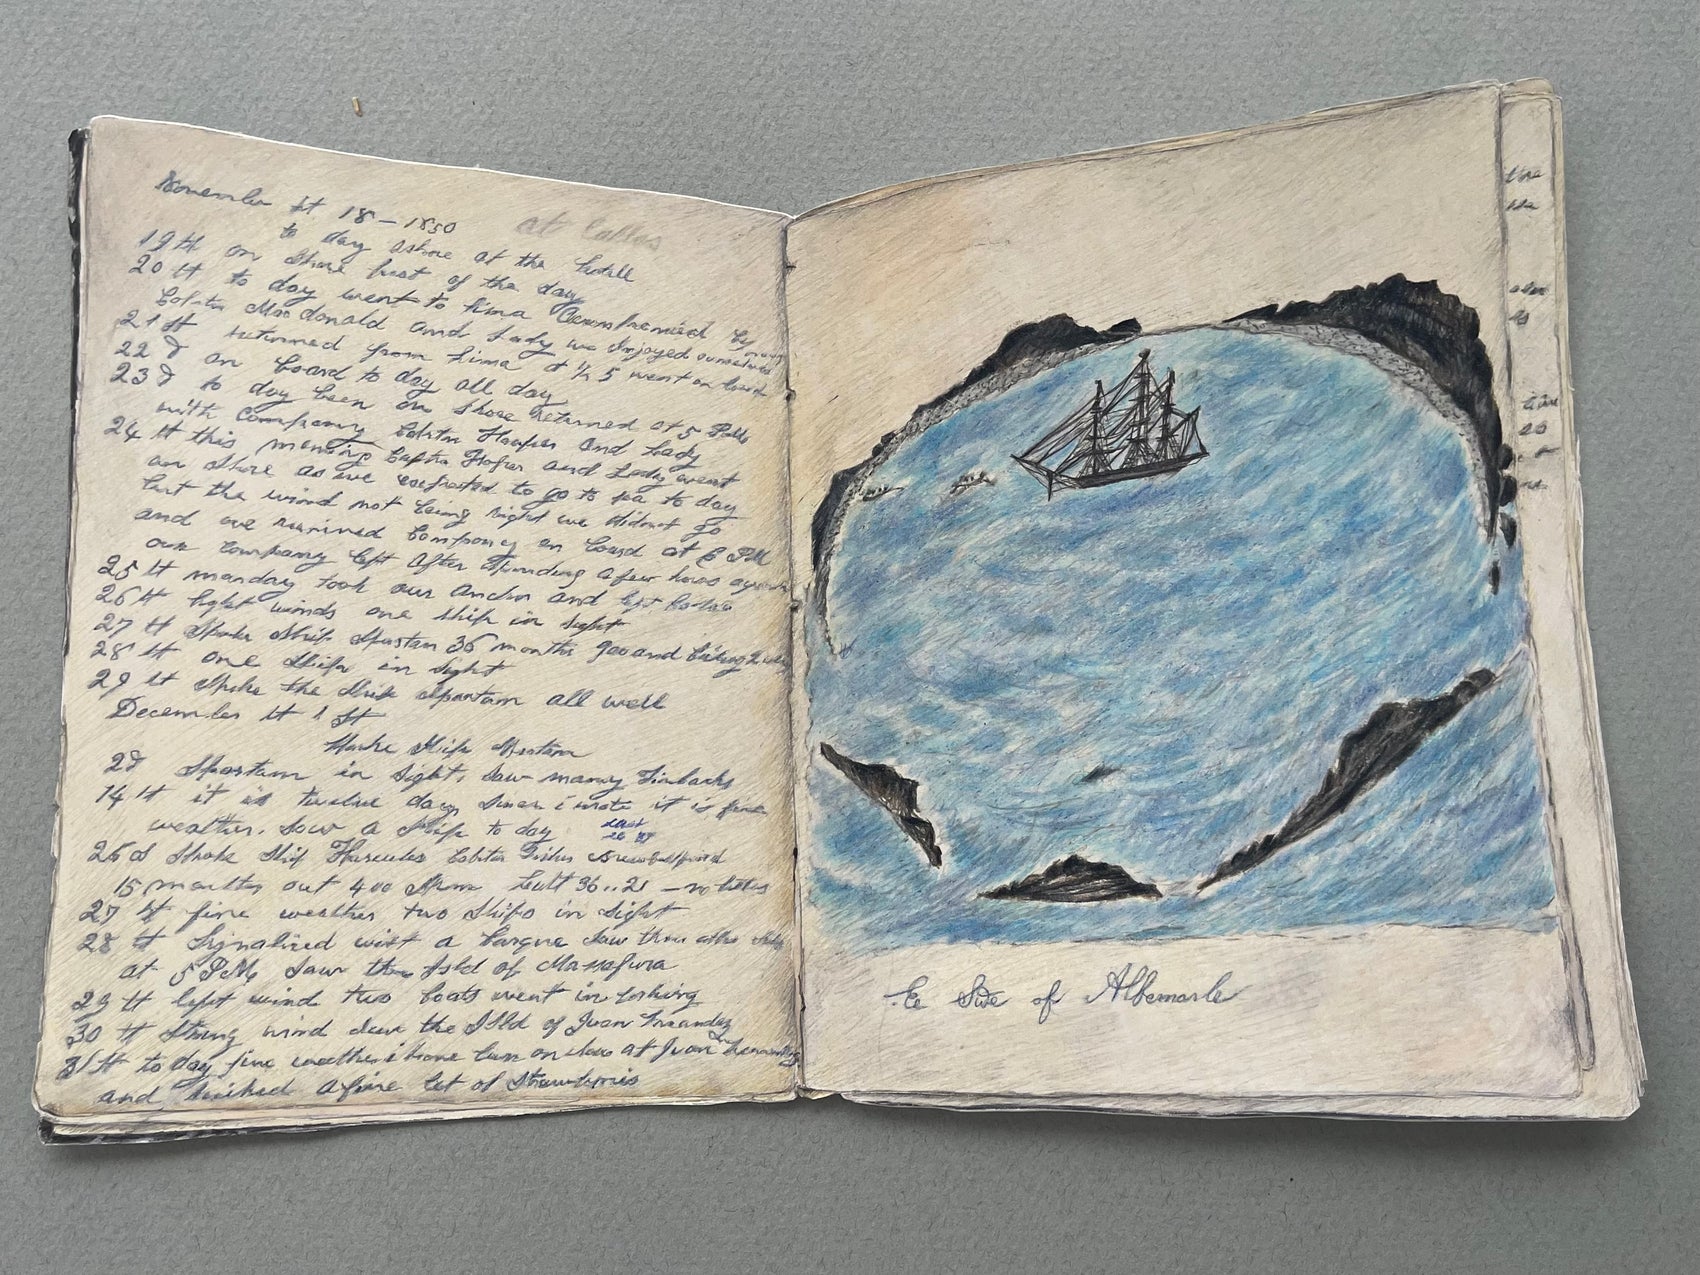 November 18 - 1850 at Callao
to day ashore at the Hotell
19 th on Shore part of the day
20 th to day went to Lima Accompanied by
Captn Macdonald and Lady we Enjoyed ourselves
21 st returned from Lima at ½ 5 went on board
22 d on board to day all day
23 d to day been on Shore returned at 5 PM
with Company Captn Harper and Lady
24 th this morning Captn Harper and Lady went
on Shore as we expected to go to sea to day
but the wind not being right we did not go
and we received Company on board at 6 PM
our company left After Spending a few hours
25 th monday took our Anchor and left Callao
26 th light winds one Ship in sight
27 th Spoke Ship Spartan 36 months 900 and
28 th one Ship in Sight
29 th Spoke the Ship Spartan all well
December 1 st
Spoke Ship Spartan
2 d Spartan in Sight, saw many Finbacks
14 th it is twelve days since i wrote it is fine
weather. Saw a Ship to day
26 Spoke Ship Hercules Captn Fisher
15 months out 400 Sperm 36..21 - no
27 th fine weather two Ships in Sight
28 th Signalized with a barque Saw three other
at 5 PM Saw the Isld of Massafura
29 th light wind two boats went in fishing
30 th Strong wind Saw the Isld of Juan Fernandez
31 st to day fine weather i have been on shore at Juan Fernandez
and picked a fine lot of Strawberries
E Side of Albemarle